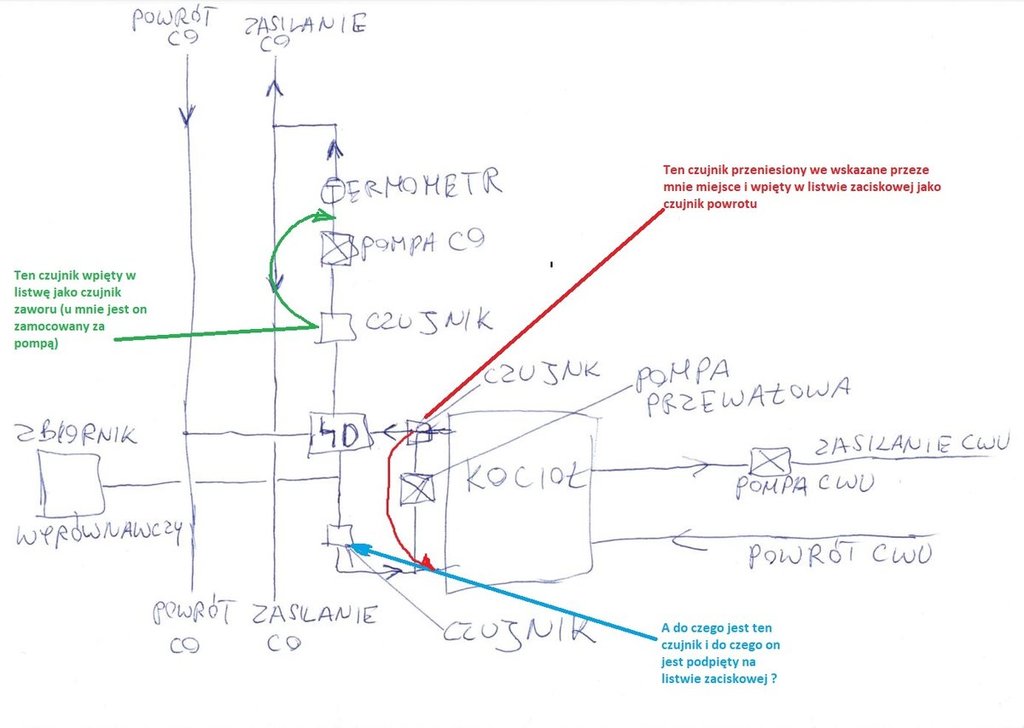 POWRÓT
CO
ZASILANIE
CO
TERMOMETR
POMPA CO
CZUJNIK
Ten czujnik przeniesiony we wskazane przeze
mnie miejsce i wpięty w listwie zaciskowej jako
czujnik powrotu
Ten czujnik wpięty w
listwę jako czujnik
zaworu (u mnie jest on
zamocowany za
pompą)
CZUJNK
POMPA
PRZEWAŁOWA
4D
ZBIORNIK
WYRÓWNAWCZY
KOCIOŁ
ZASILANIE CWU
POMPA CWU
POWRÓT CWU
POWRÓT
CO
ZASILANIE
CO
CZUJNIK
A do czego jest ten
czujnik i do czego on
jest podpięty na
listwie zaciskowej ?